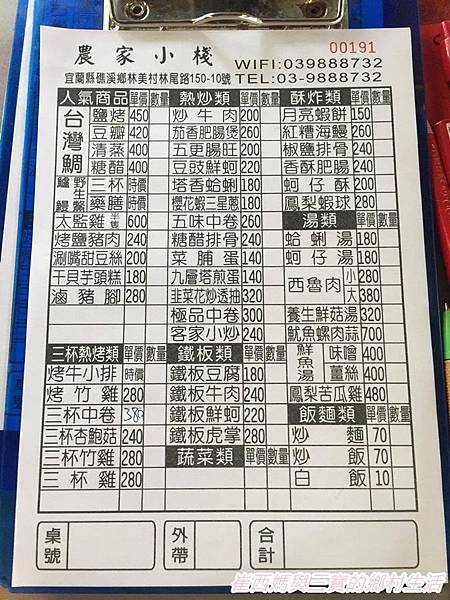 農家小棧
00191
WIFI:039888732
宜蘭縣礁溪鄉林美村林尾路150-10號 TEL:03-9888732
人氣商品 單價 數量 熱炒類 單價 數量 酥炸類 單價 數量
台灣鯛 鹽烤 450 炒牛肉 200 月亮蝦餅 150
豆瓣 420 茄香肥腸煲 260 紅糟海鰻 260
清蒸 400 五更腸旺 200 椒鹽排骨 240
糖醋 400 豆豉鮮蚵 220 香酥肥腸 240
鱸鰻 野生鱉 三杯 時價 塔香蛤蜊 180 蚵仔酥 200
藥膳 時價 櫻花蝦三星蔥 180 鳳梨蝦球 280
太監雞 半隻 600 五味中卷 260 湯類 單價 數量
烤鹽豬肉 240 糖醋排骨 240 蛤蜊湯 180
涮嘴甜豆絲 200 菜脯蛋 140 蚵仔湯 180
干貝芋頭糕 180 九層塔煎蛋 140 西魯肉 小 280
滷豬腳 280 韭菜花炒透抽 320 大 380
極品中卷 300 養生鮮菇湯 320
客家小炒 240 魷魚螺肉蒜 700
三杯熱烤類 單價 數量 鐵板類 單價 數量 鮮魚湯 味噌 400
烤牛小排 時價 鐵板豆腐 180 薑絲 400
烤竹雞 280 鐵板牛肉 240 鳳梨苦瓜雞 480
三杯中卷 380 鐵板鮮蚵 220 飯麵類 單價 數量
三杯杏鮑菇 240 鐵板虎掌 280 炒麵 70
三杯竹雞 280 蔬菜類 單價 數量 炒飯 70
三杯雞 280 白飯 10
桌號 外帶 合計
崔西媽與二寶的鄉村生活